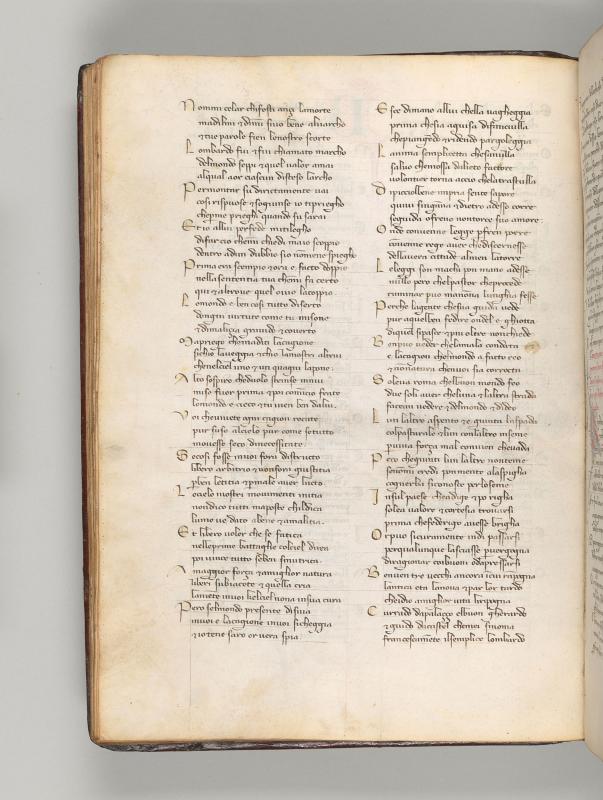 Nommi celar chi fosti anzi lamorte
madilmi e dimi sivo bene aluarcho
e tue parole fien lenostre scorte
Lombardo fui e fui chiamato marcho
delmondo seppi e quel valor amai
alqual aor ciascun disteso larcho
Permontar su dirictamente vai
cosi rispuose e sogiunse io tiprriegho
cheperme prieghi quando su sarai
Et io allui perfede mitilegho
difar cio chemi chiedi maio scoppio
dentro adun dubbio sio nommene spiegho
Prima era scempio e ora e facto doppio
nella sententia tua chemi fa certo
qui e altroue quel ouio lacoppio
Lomondo e ben cosi tutto diserto
dongni virtute come tu misone
e dimalitia grauido e couerto
Mapriego chemaditi lacagione
sichio laueggia e chio lamostri altrui
chenelciel uno e un quagiu lapone
Alto sospiro cheduolo strinse inuui
miso fuor prima e poi comincio frate
lomondo e cieco e tu uien ben dalui
Voi cheuiuete ogni cagion recate
pur suso alcielo pur come setutto
mouesse seco dinecessitate
Secosi fosse inuoi fora distructo
libero arbitrio e nonfora giustitia
per ben letitia e per male auer lucto
Locielo uostri mouimenti initia
nondico tutti maposto childica
lume ue dato abene e amalitia
Et libero uoler che se fatica
nelleprime battaglie colciel dura
poi uince tutto seben sinutrica
Amaggior força e amiglior natura
liberi subiacete e quella cria
lamente inuoi chelciel nona insua cura
Pero selmondo presente disuia
inuoi e lacagione inuoi sicheggia
e iotene saro or vera spia
Esce dimano allui chella uagheggia
prima chesia aguisa difanciulla
chepiangendo e ridendo pargoleggia
Lanima semplicetta chesanulla
saluo chemossa dalieto factore
volontier torna accio chelatrastulla
Dipicciolbene impria sente sapore
quiui singanna e dietro adesso corre
seguida ofreno nontorce suo amore
Onde conuenne legge per fren porre
conuenne rege auer chediscernesse
dellauera cittade almen latorre
Leleggi son machi pon mano adesse
nullo pero chelpastor cheprocede
rumminar puo manona lunghia fesse
Perche lagente chesua guida uede
pur aquelben fedire ondel e ghiotta
diquel sipasce e piu oltre nonchiede
Benpuo ueder chelamala condocta
e lacagion chelmondo a facto reo
e nonatura chenuoi sia corrocta
Soleua roma chelbuon mondo feo
due soli auer cheluna e laltra strada
facean uedere e delmondo e dideo
Lun laltro aspento e e giunta laspada
colpasturale e lun conlaltro insieme
per uiua força mal conuien cheuada
Pero chegiunti lun laltro nonteme
senommi credi ponmente alaspigha
cognerba siconosce perloseme
Insul paese cheadige e po righa
solea ualore e cortesia trouarsi
prima chefederigo auesse brigha
Orpuo sicuramente indi passarsi
perqualunque lasciasse peruergogna
diragionar conbuoni odapressarsi
Benuen tre vecchi ancora incui rapogna
lantica eta lanoua e par lor tardo
chedio amiglior uita liripogna
Currado dapalaççe elbuon gherardo
e guido dacastel chemei sinoma
francescamente ilsemplice lombardo